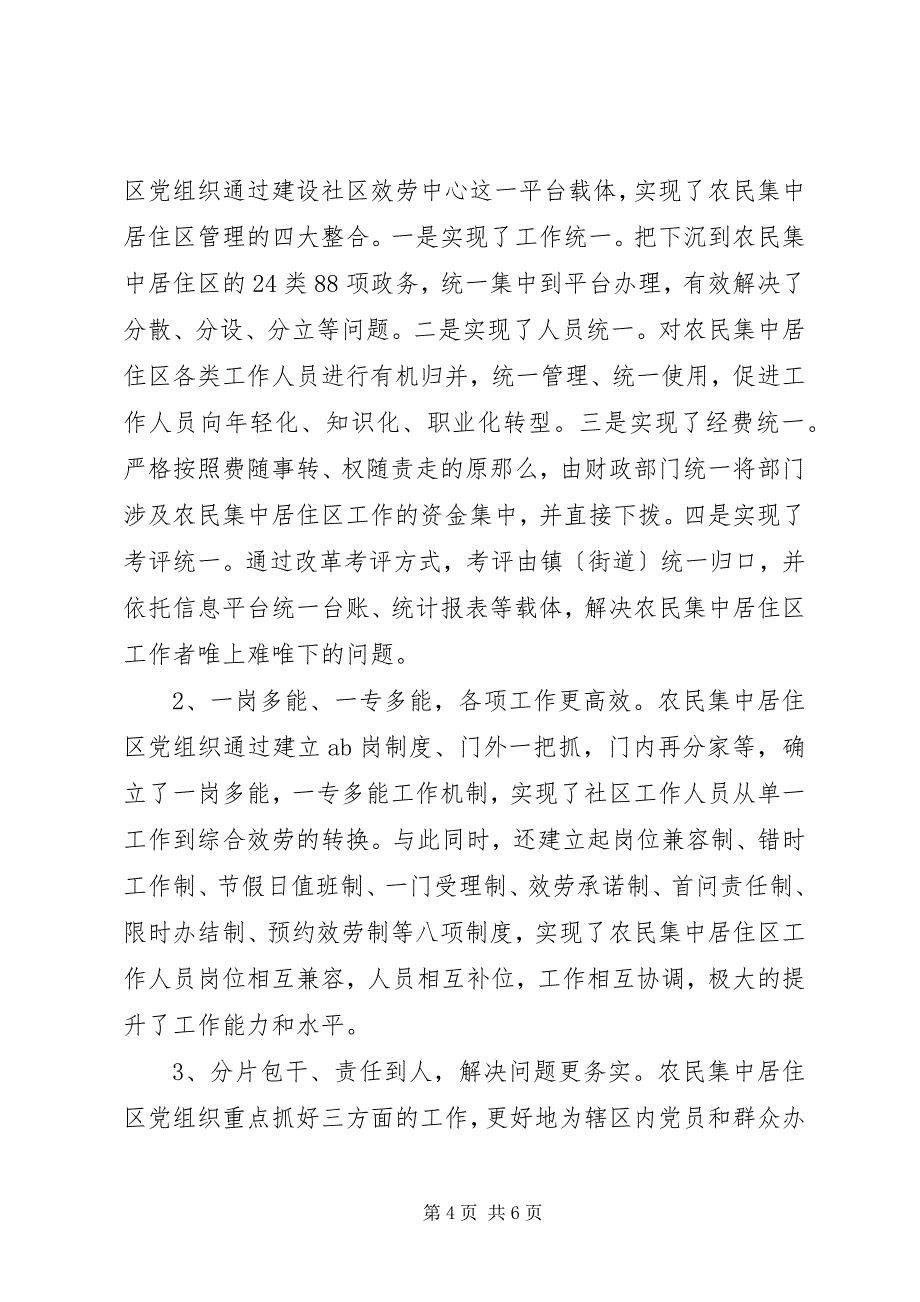 区党组织通过建设社区效劳中心这一平台载体，实现了农民集中
居住区管理的四大整合。一是实现了工作统一。把下沉到农民集
中居住区的 24 类 88 项政务，统一集中到平台办理，有效解决了
分散、分设、分立等问题。二是实现了人员统一。对农民集中居
住区各类工作人员进行有机归并，统一管理、统一使用，促进工
作人员向年轻化、知识化、职业化转型。三是实现了经费统一。
严格按照费随事转、权随责走的原那么，由财政部门统一将部门
涉及农民集中居住区工作的资金集中，并直接下拨。四是实现了
考评统一。通过改革考评方式，考评由镇〔街道〕统一归口，并
依托信息平台统一台账、统计报表等载体，解决农民集中居住区
工作者唯上难唯下的问题。
2、一岗多能、一专多能，各项工作更高效。农民集中居住
区党组织通过建立 ab 岗制度、门外一把抓，门内再分家等，确
立了一岗多能，一专多能工作机制，实现了社区工作人员从单一
工作到综合效劳的转换。与此同时，还建立起岗位兼容制、错时
工作制、节假日值班制、一门受理制、效劳承诺制、首问责任制、
限时办结制、预约效劳制等八项制度，实现了农民集中居住区工
作人员岗位相互兼容，人员相互补位，工作相互协调，极大的提
升了工作能力和水平。
3、分片包干、责任到人，解决问题更务实。农民集中居住
区党组织重点抓好三方面的工作，更好地为辖区内党员和群众办
第 4 页 共 6 页